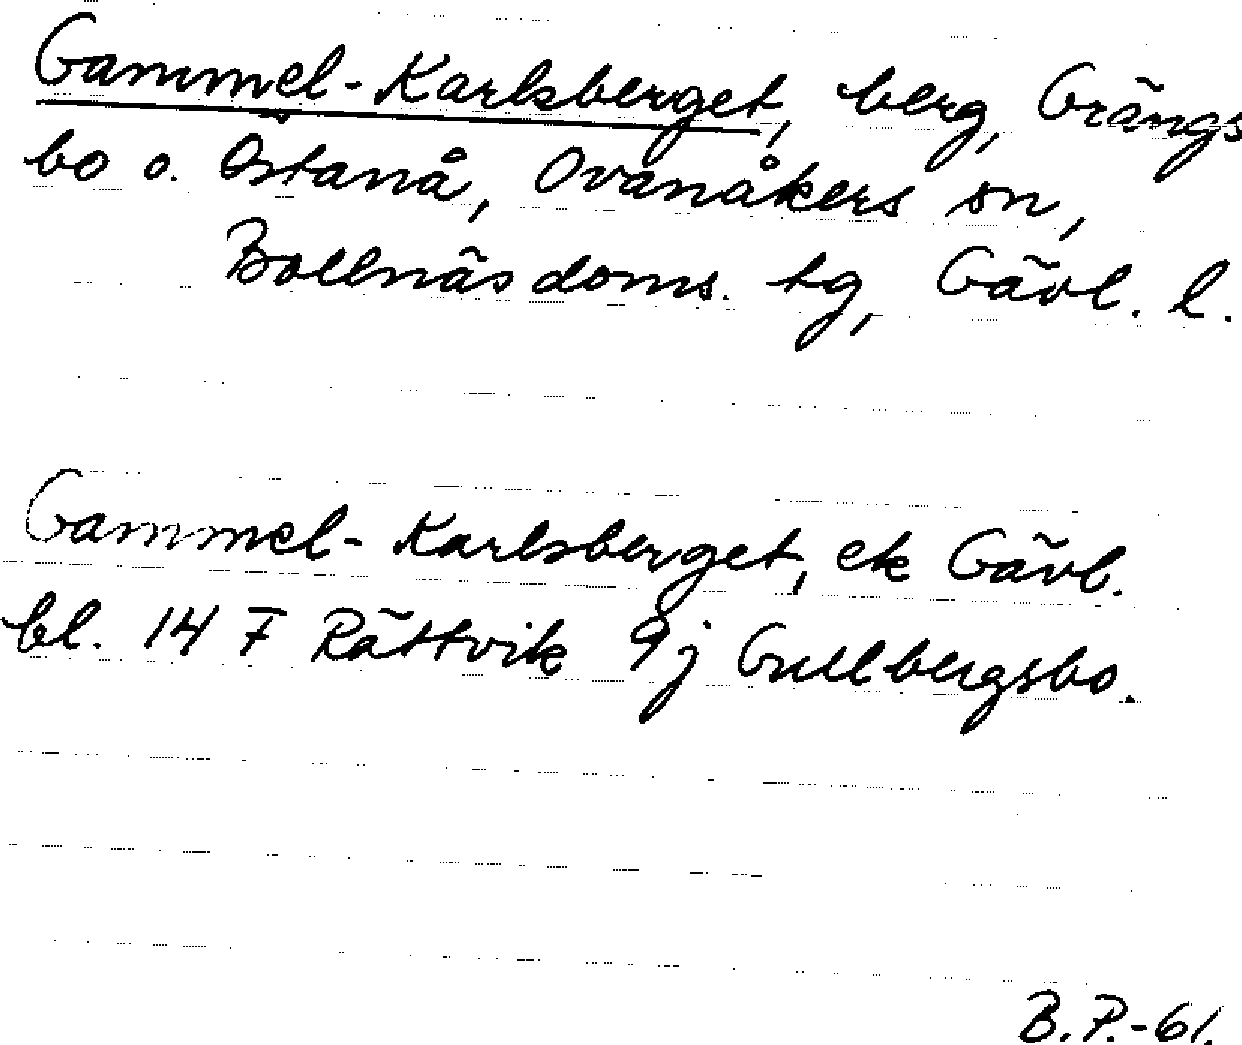 Gammel-Karlsberget, berg, Grängs
bo o. Östanå, Ovanåkers sn,
Bollnäs doms. tg, Gävl. l.
Gammel-Karlsberget, ek Gävl.
bl. 14 F Rättvik 9j Gullbergsbo.
B.P.-61.